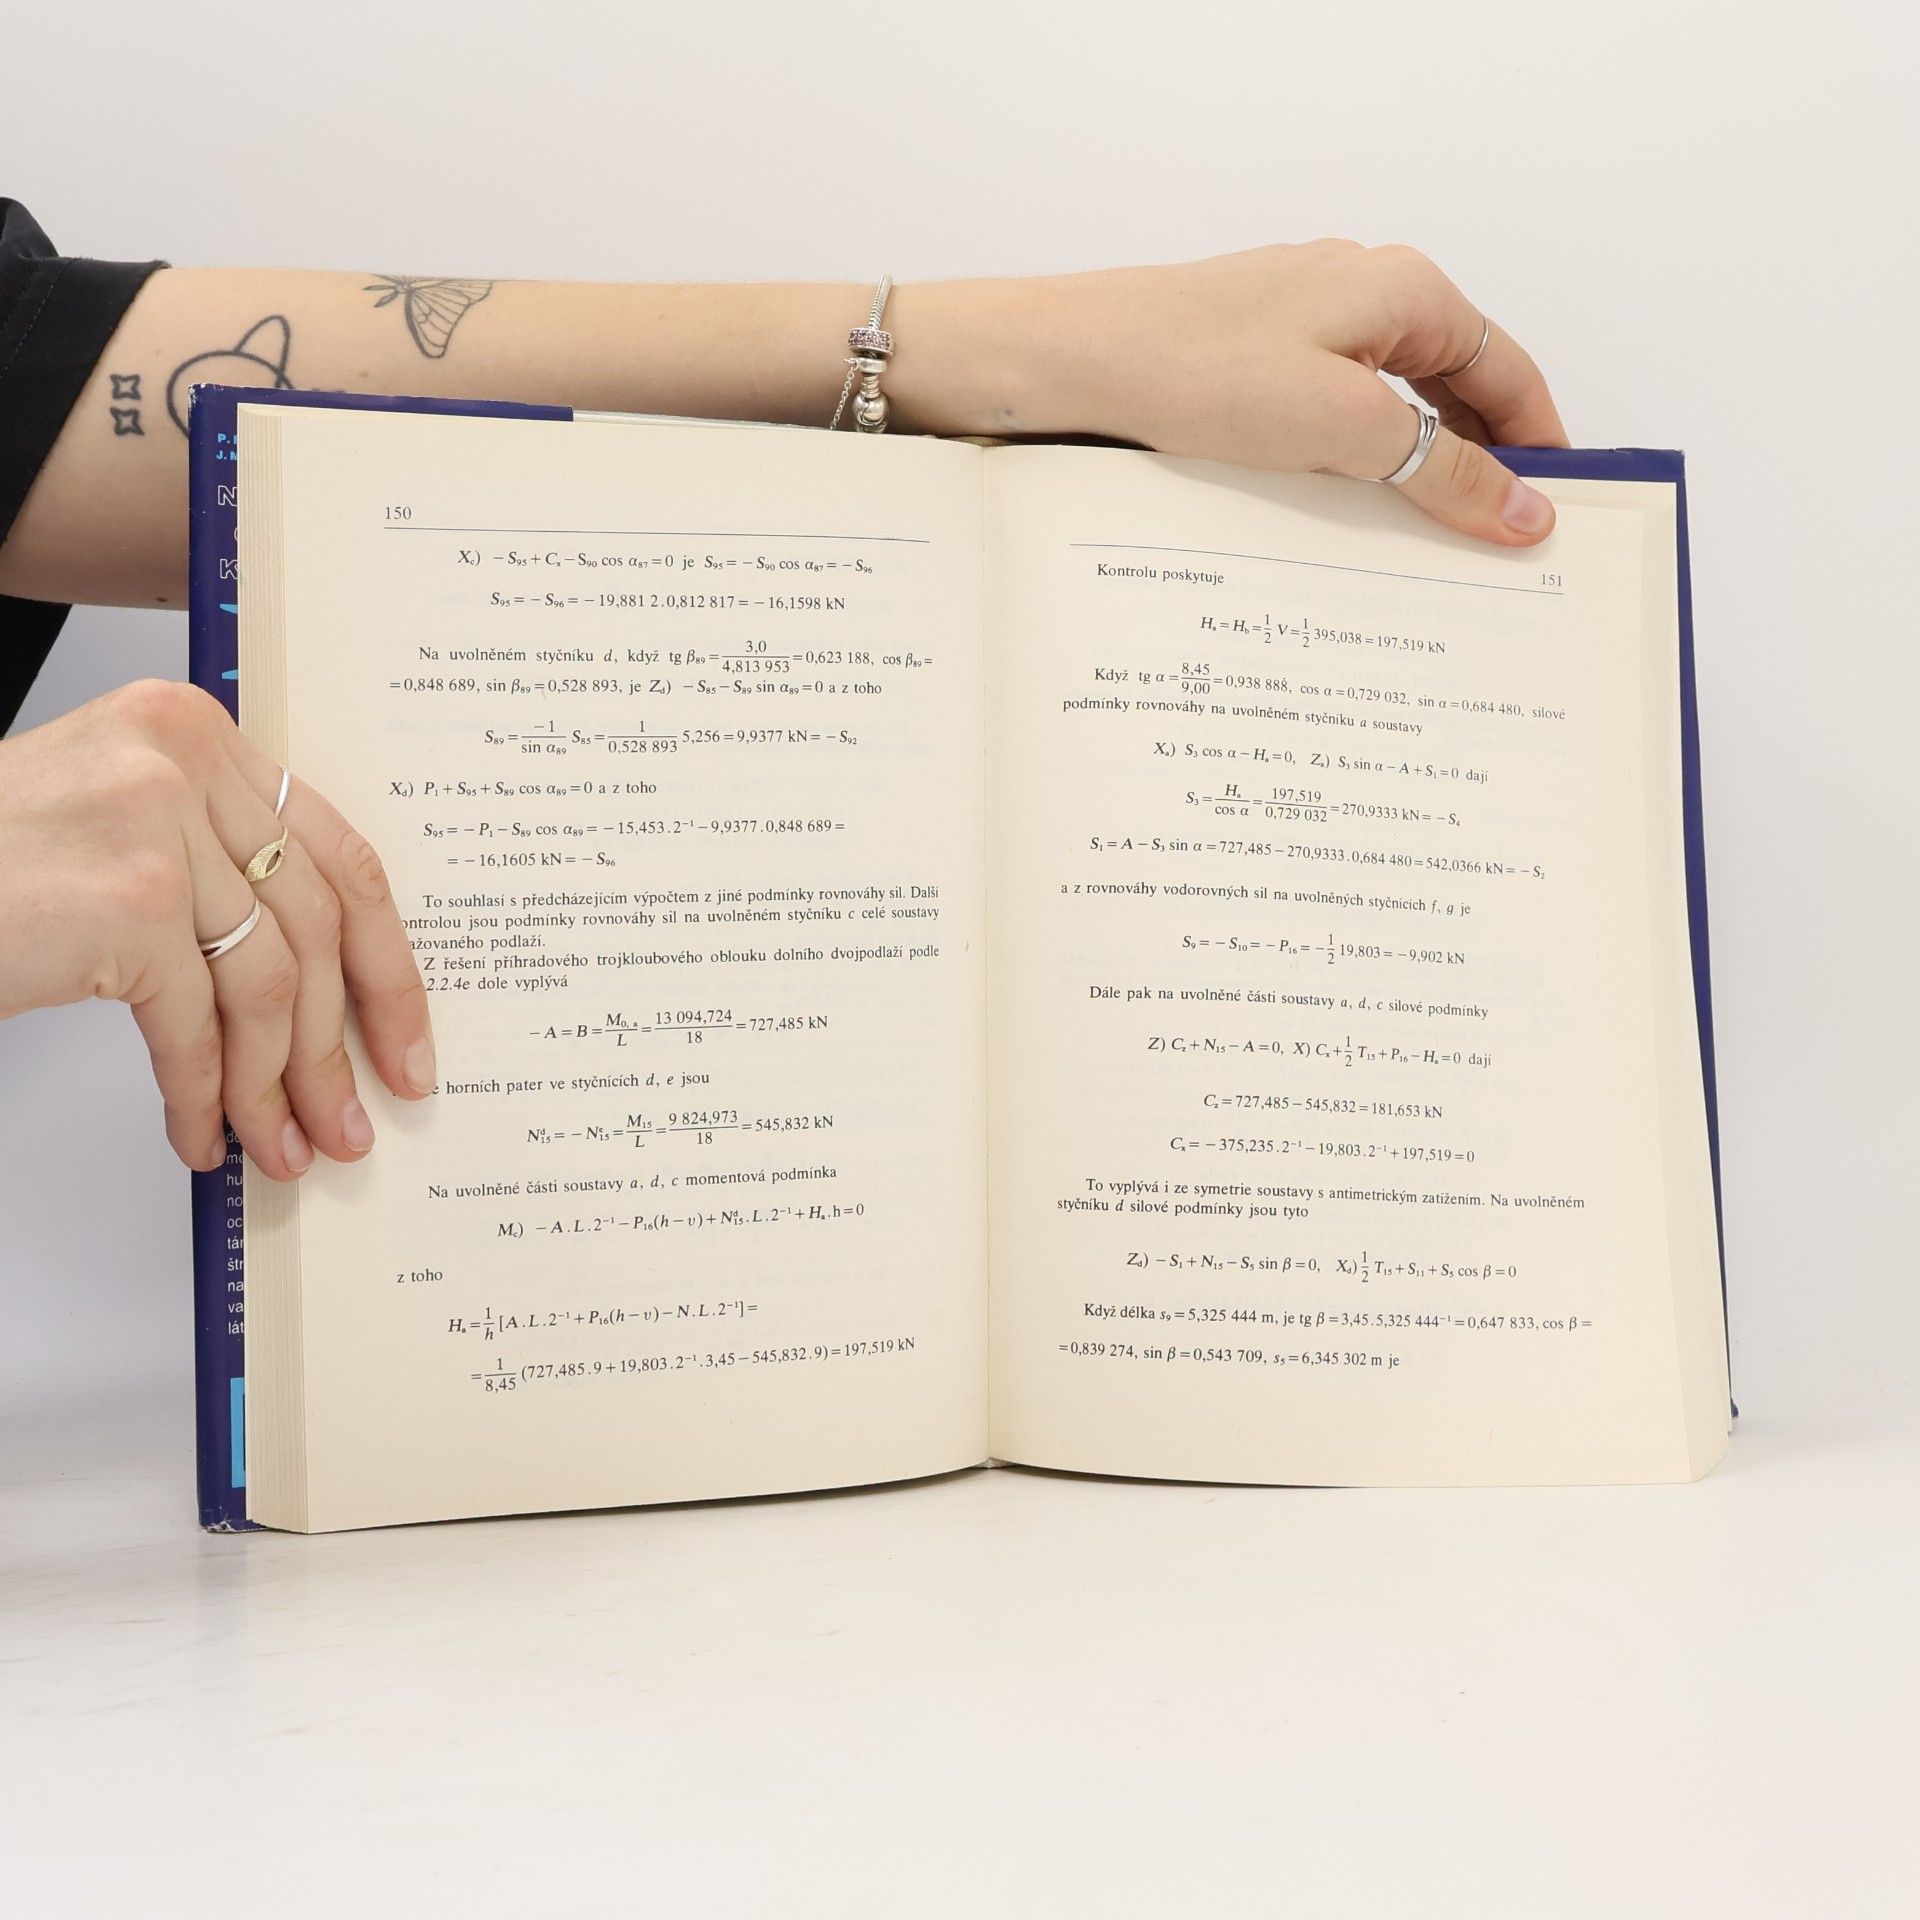 P.
J. M
N
K
150
X_c) −S₉₅ + Cₓ − S₉₀ cos α₈₇ = 0 je S₉₅ = − S₉₀ cos α₈₇ = − S₉₆
S₉₅ = − S₉₆ = − 19,881 2 . 0,812 817 = − 16,1598 kN
Na uvolněném styčníku d, když tg β₈₉ = 3,0/4,813 953 = 0,623 188, cos β₈₉ =
= 0,848 689, sin β₈₉ = 0,528 893, je Z_d) −S₈₅ − S₈₉ sin α₈₉ = 0 a z toho
S₈₉ = −1/sin α₈₉ S₈₅ = 1/0,528 893 5,256 = 9,9377 kN = − S₉₂
X_d) P₁ + S₉₅ + S₈₉ cos α₈₉ = 0 a z toho
S₉₅ = − P₁ − S₈₉ cos α₈₉ = − 15,453 . 2⁻¹ − 9,9377 . 0,848 689 =
= − 16,1605 kN = − S₉₆
To souhlasí s předcházejícím výpočtem z jiné podmínky rovnováhy sil. Další
ontrolou jsou podmínky rovnováhy sil na uvolněném styčníku c celé soustavy
ažovaného podlaží.
Z řešení příhradového trojkloubového oblouku dolního dvojpodlaží podle
2.2.4e dole vyplývá
− A = B = M₀,ₐ/L = 13 094,724/18 = 727,485 kN
e horních pater ve styčnících d, e jsou
N₁₅ᵈ = − N₁₅ᵉ = M₁₅/L = 9 824,973/18 = 545,832 kN
Na uvolněné části soustavy a, d, c momentová podmínka
M_c) − A . L . 2⁻¹ − P₁₆(h − v) + N₁₅ᵈ . L . 2⁻¹ + Hₐ . h = 0
z toho
Hₐ = 1/h [A . L . 2⁻¹ + P₁₆(h − v) − N . L . 2⁻¹] =
= 1/8,45 (727,485 . 9 + 19,803 . 2⁻¹ . 3,45 − 545,832 . 9) = 197,519 kN
mo
hu
no
oc
tár
štr
na
va
lát
151
Kontrolu poskytuje
Hₐ = H_b = 1/2 V = 1/2 395,038 = 197,519 kN
Když tg α = 8,45/9,00 = 0,938 888, cos α = 0,729 032, sin α = 0,684 480, silové
podmínky rovnováhy na uvolněném styčníku a soustavy
Xₐ) S₃ cos α − Hₐ = 0, Zₐ) S₃ sin α − A + S₁ = 0 dají
S₃ = Hₐ/cos α = 197,519/0,729 032 = 270,9333 kN = − S₄
S₁ = A − S₃ sin α = 727,485 − 270,9333 . 0,684 480 = 542,0366 kN = − S₂
a z rovnováhy vodorovných sil na uvolněných styčnících f, g je
S₉ = − S₁₀ = − P₁₆ = − 1/2 19,803 = −9,902 kN
Dále pak na uvolněné části soustavy a, d, c silové podmínky
Z) C_z + N₁₅ − A = 0, X) Cₓ + 1/2 T₁₅ + P₁₆ − Hₐ = 0 dají
C_z = 727,485 − 545,832 = 181,653 kN
Cₓ = − 375,235 . 2⁻¹ − 19,803 . 2⁻¹ + 197,519 = 0
To vyplývá i ze symetrie soustavy s antimetrickým zatížením. Na uvolněném
styčníku d silové podmínky jsou tyto
Z_d) − S₁ + N₁₅ − S₅ sin β = 0, X_d) 1/2 T₁₅ + S₁₁ + S₅ cos β = 0
Když délka s₉ = 5,325 444 m, je tg β = 3,45 . 5,325 444⁻¹ = 0,647 833, cos β =
= 0,839 274, sin β = 0,543 709, s₅ = 6,345 302 m je